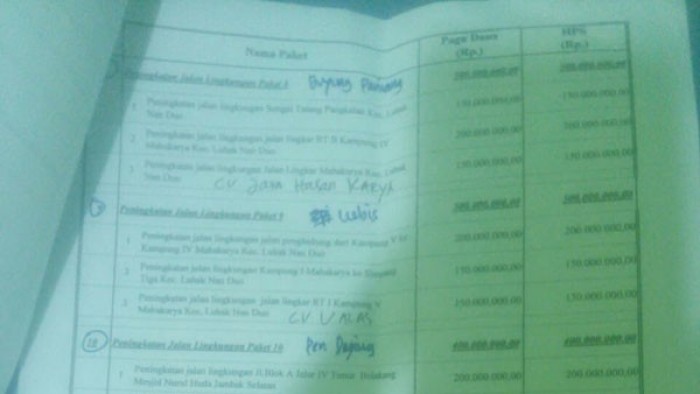 Nama Paket
Pagu Dana
(Rp.)
HPS
(Rp.)
Peningkatan Jalan Lingkungan Paket 8
500.000.000,00 500.000.000,00
1 Peningkatan jalan lingkungan Sungai Kec. Lubuk
Nan Duo
150.000.000,00 150.000.000,00
2 Peningkatan jalan lingkungan jalan lingkar RT II Kampung IV
Mahakarya Kec. Luhak Nan Duo
200.000.000,00 200.000.000,00
3 Peningkatan jalan lingkungan Jalan Lingkar Mahakarya Kec. Luhak
Nan Duo
150.000.000,00 150.000.000,00
CV Jasa Hasan Karya
9 Peningkatan Jalan Lingkungan Paket 9
500.000.000,00 500.000.000,00
1 Peningkatan jalan lingkungan jalan penghubung dari Kampung V ke
Kampung IV Mahakarya Kec. Luhak Nan Duo
200.000.000,00 200.000.000,00
2 Peningkatan jalan lingkungan Kampung I Mahakarya ke Simpang
Tiga Kec. Luhak Nan Duo
150.000.000,00 150.000.000,00
3 Peningkatan jalan lingkungan jalan lingkar RT I Kampung V
Mahakarya Kec. Luhak Nan Duo
150.000.000,00 150.000.000,00
CV
10 Peningkatan Jalan Lingkungan Paket 10 Pen
400.000.000,00 400.000.000,00
1 Peningkatan jalan lingkungan Jl.Blok A Jalur IV Timur Belakang
Mesjid Nurul Huda Jambak Selatan
200.000.000,00 200.000.000,00